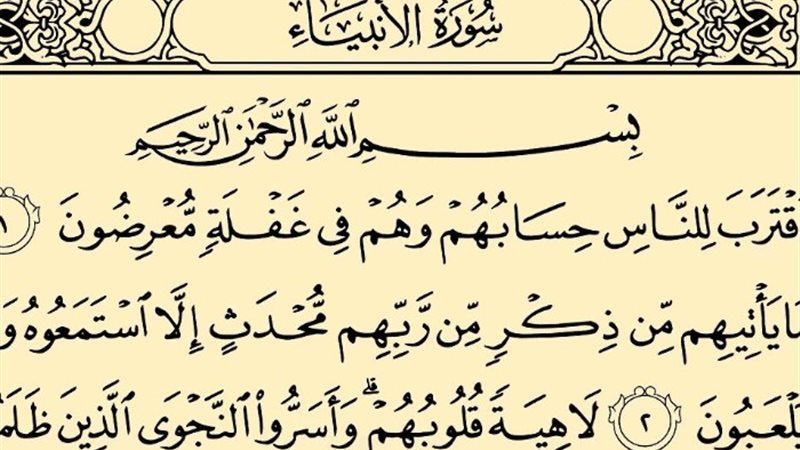 سُورَةُ الأَنبِيَاءِ
بِسْمِ ٱللَّهِ ٱلرَّحْمَٰنِ ٱلرَّحِيمِ
ٱقْتَرَبَ لِلنَّاسِ حِسَابُهُمْ وَهُمْ فِى غَفْلَةٍ مُّعْرِضُونَ ١
مَا يَأْتِيهِم مِّن ذِكْرٍ مِّن رَّبِّهِم مُّحْدَثٍ إِلَّا ٱسْتَمَعُوهُ وَ
يَلْعَبُونَ ٢ لَاهِيَةً قُلُوبُهُمْ ۗ وَأَسَرُّوا۟ ٱلنَّجْوَى ٱلَّذِينَ ظَلَمُ